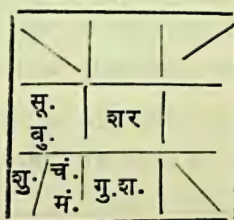 सू.
बु. शर
शु. चं.
मं. गु.श.